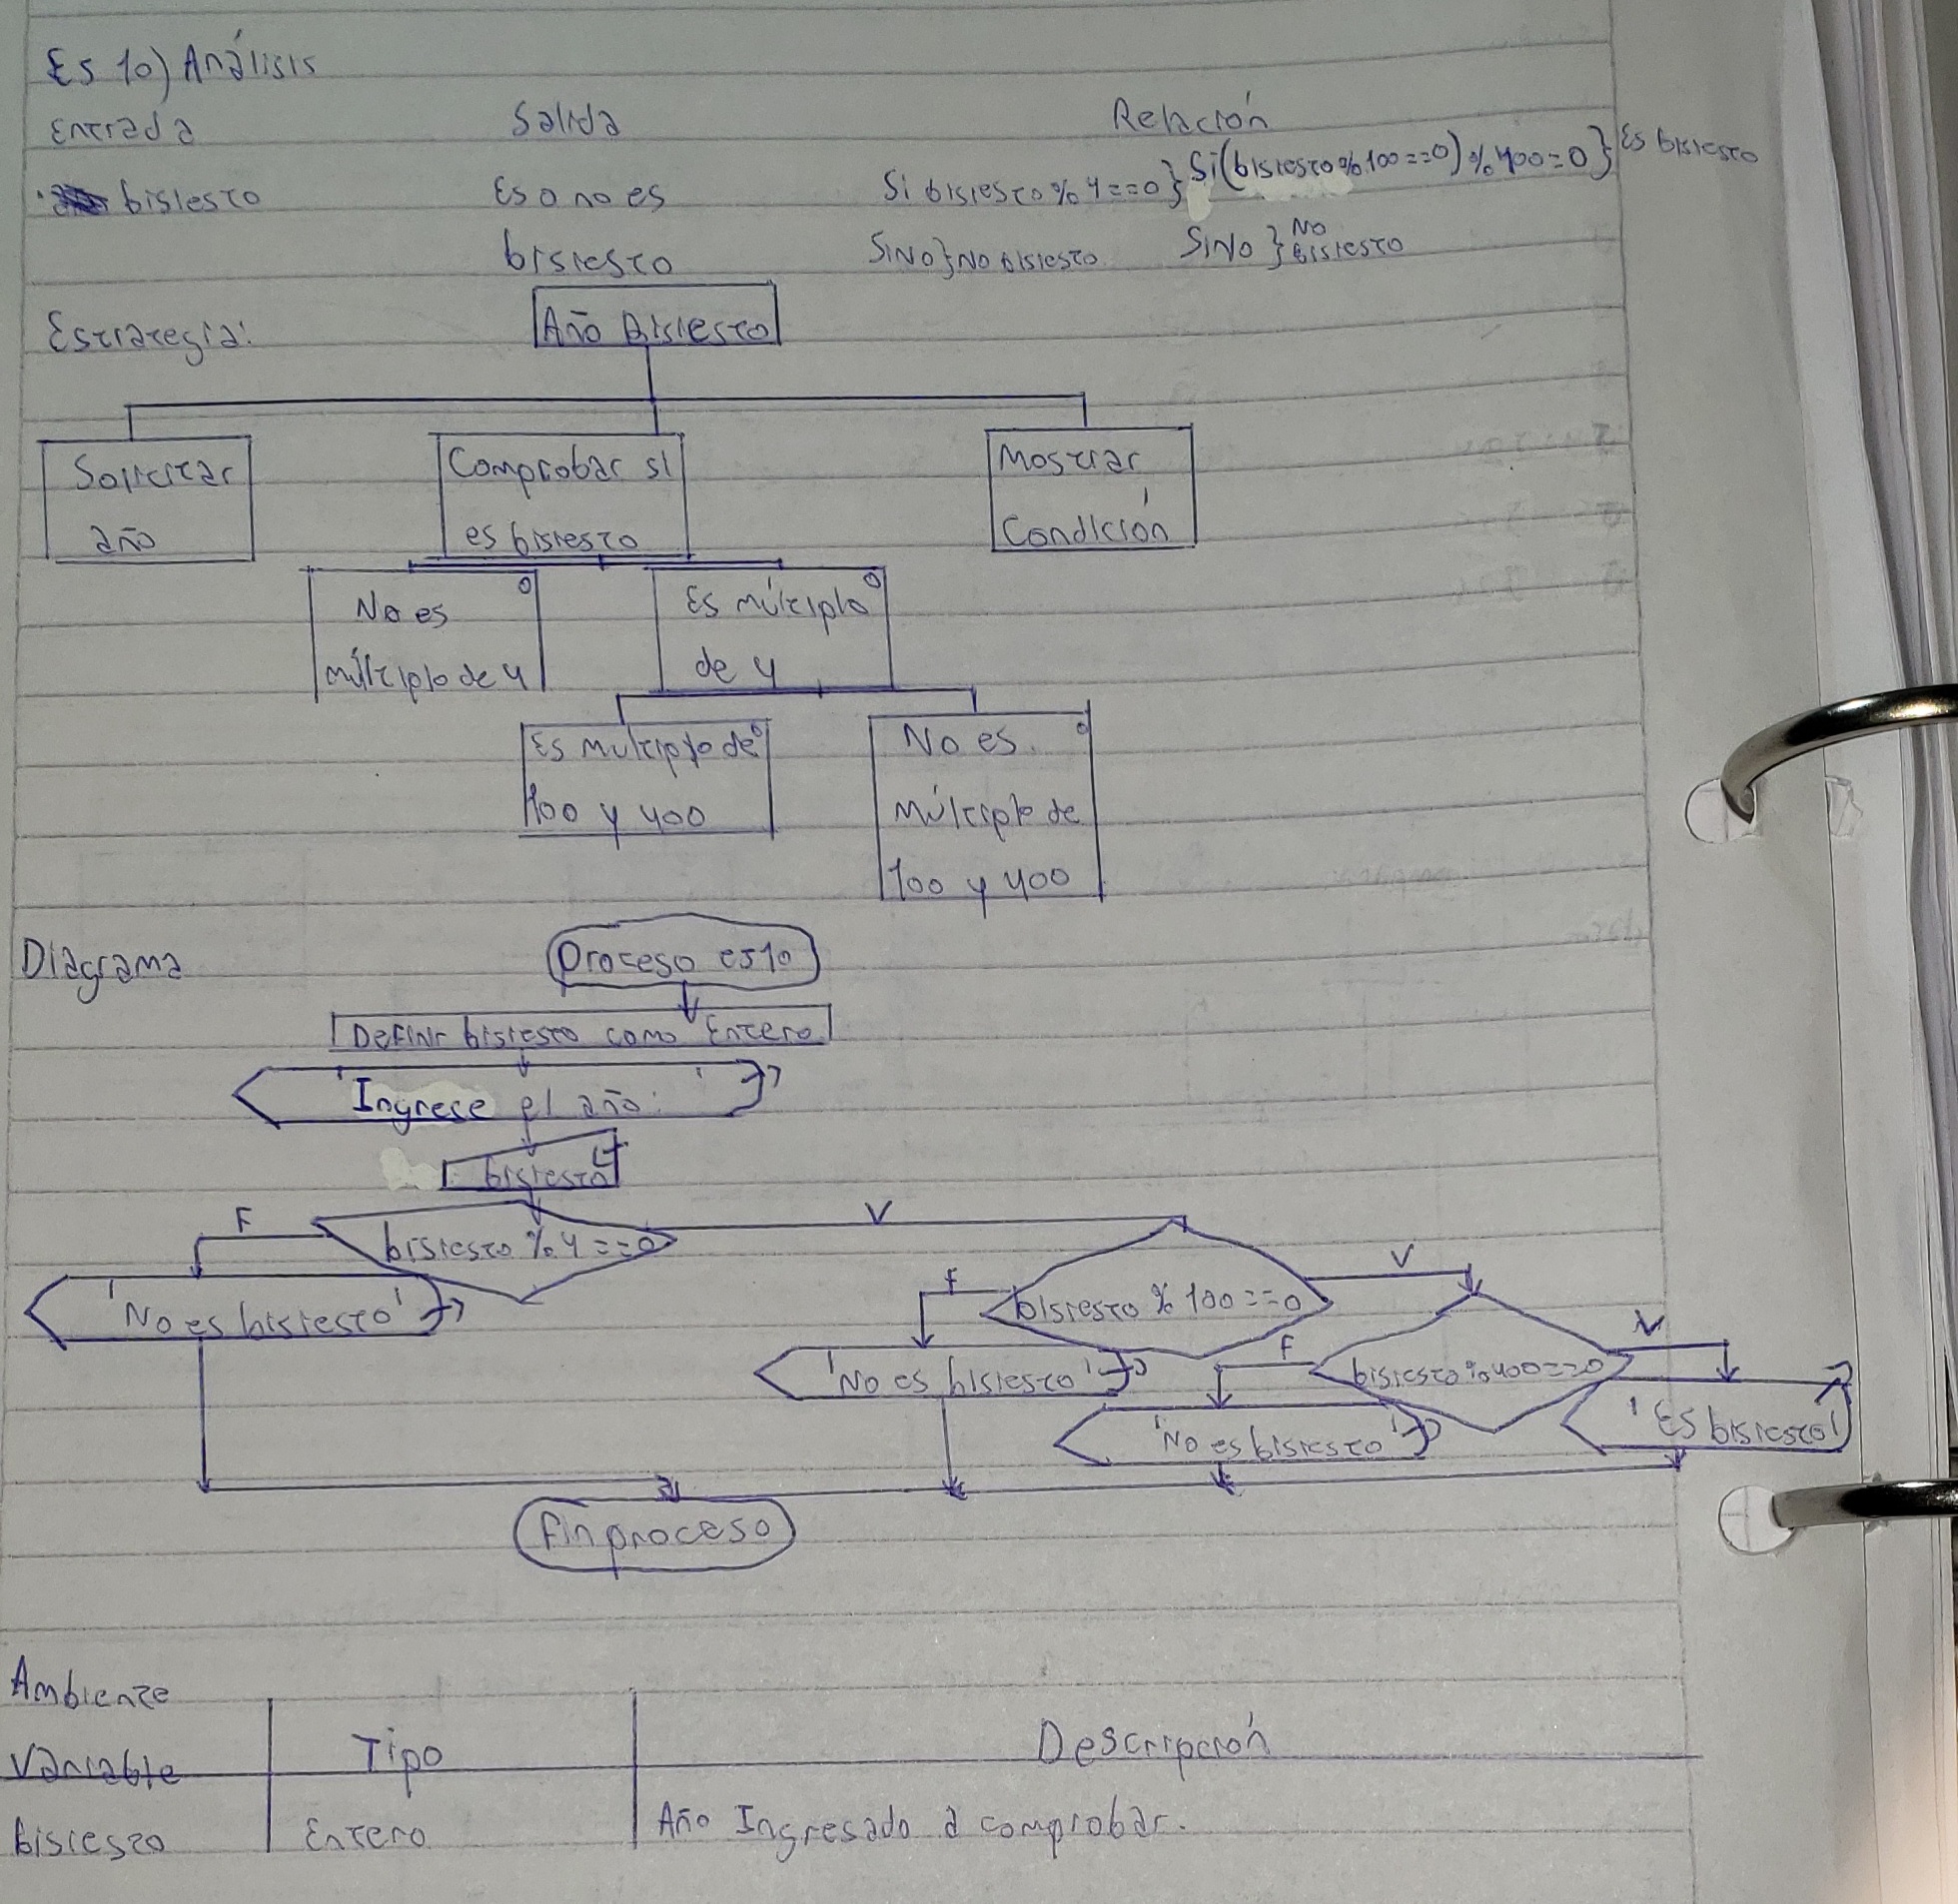 Es 10) Análisis
Entrada Salida Relación
bisiesto Es o no es Si bisiesto % 4 == 0 } Si (bisiesto % 100 == 0) % 400 = 0 } Es bisiesto
bisiesto SiNo } No bisiesto SiNo } No bisiesto
Estrategia: Año Bisiesto
Solicitar año
Comprobar si es bisiesto
Mostrar Condición
No es múltiplo de 4
Es múltiplo de 4
Es multiplo de 100 y 400
No es múltiplo de 100 y 400
Diagrama
Proceso es10
Definir bisiesto como Entero
'Ingrese el año: '
bisiesto
F bisiesto % 4 == 0 V
'No es bisiesto'
F bisiesto % 100 == 0 V
'No es bisiesto'
F bisiesto % 400 == 0 V
'No es bisiesto'
'Es bisiesto'
Finproceso
Ambiente
Variable Tipo Descripción
Bisiesto Entero Año Ingresado a comprobar.